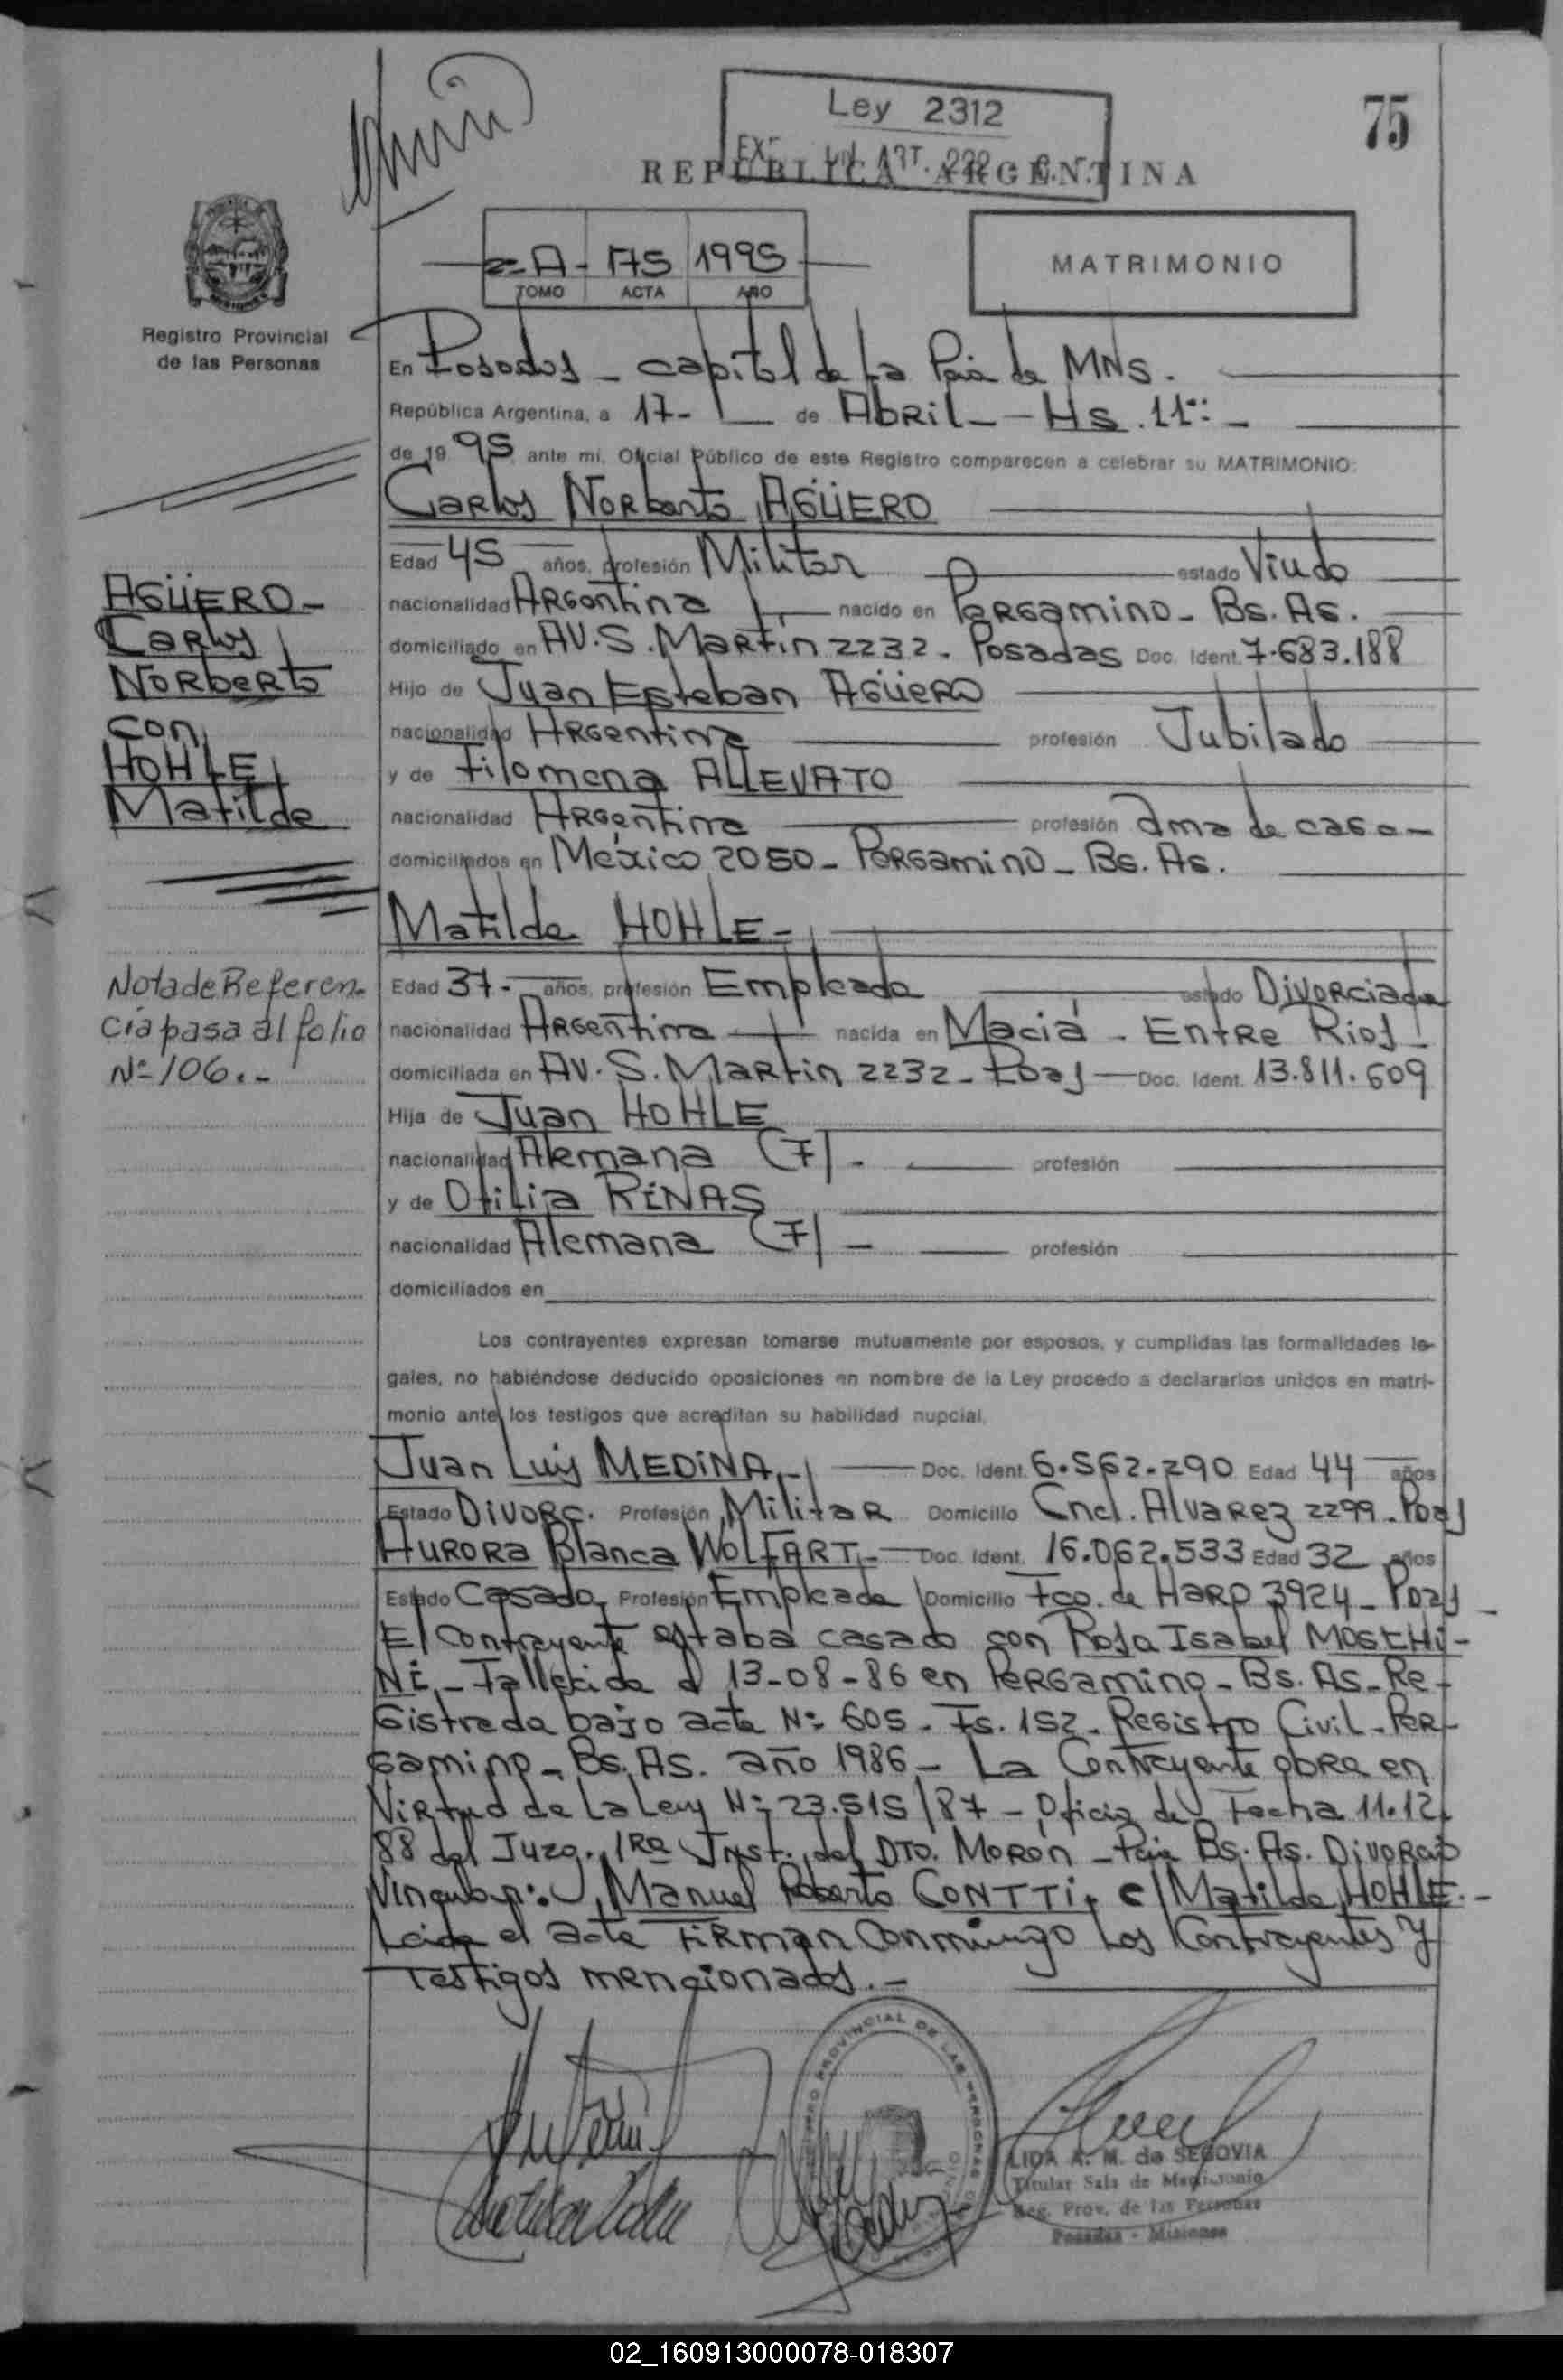 75
Ley 2312
ART. 222
REPUBLICA ARGENTINA
A - 75 1995
TOMO ACTA AÑO
MATRIMONIO
Registro Provincial
de las Personas
En Posadas - capital de La Pcia de MNS.
República Argentina, a 17- de Abril - Hs. 11:
de 19 95 ante mi, Oficial Público de este Registro comparecen a celebrar su MATRIMONIO:
Carlos Norberto AGÜERO
Edad 45 años, profesión Militar estado Viudo
nacionalidad Argentina nacido en Pergamino - Bs. As.
domiciliado en AV. S. Martin 2232 - Posadas Doc. Ident. 7.683.188
Hijo de Juan Esteban AGÜERO
nacionalidad Argentina profesión Jubilado
y de Filomena ALLEVATO
nacionalidad Argentina profesión ama de casa -
domiciliados en México 2050 - Pergamino - Bs. As.
AGÜERO -
Carlos
Norberto
con
HOHLE
Matilde
Matilde HOHLE -
Edad 37 - años, profesión Empleada estado Divorciada
nacionalidad Argentina nacida en Maciá - Entre Rios -
domiciliada en AV. S. Martin 2232 - Pdas - Doc. Ident. 13.811.609
Hija de Juan HOHLE
nacionalidad Alemana (F) - profesión
y de Otilia RINAS
nacionalidad Alemana (F) - profesión
domiciliados en
Nota de Referen-
cia pasa al folio
Nº 106.-
Los contrayentes expresan tomarse mutuamente por esposos, y cumplidas las formalidades le-
gales, no habiéndose deducido oposiciones en nombre de la Ley procedo a declararlos unidos en matri-
monio ante los testigos que acreditan su habilidad nupcial.
Juan Luis MEDINA - Doc. Ident. 6.562.290 Edad 44 años
Estado Divorc. Profesión Militar Domicilio Cnel. Alvarez 2299 - Pdas
Aurora Blanca WOLFART - Doc. Ident. 16.062.533 Edad 32 años
Estado Casada Profesión Empleada Domicilio Fco. de Haro 3924 - Pdas
El contrayente estaba casado con Rosa Isabel MOSCHI-
NI - Fallecida el 13-08-86 en Pergamino - Bs. As - Re-
gistrada bajo acta Nº 605 - Fs. 152 - Registro Civil - Per-
gamino - Bs. As. año 1986 - La Contrayente obra en
Virtud de la Ley Nº 23.515/87 - Oficio de Fecha 11.12.
88 del Juzg. 1ra Inst. del DTO. Morón - Pcia Bs. As. Divorcio
Vincular: Manuel Roberto CONTTI c/ Matilde HOHLE -
Leida el acta Firman Conmingo Los Contrayentes y
Testigos mencionados. -
REGISTRO PROVINCIAL DE LAS PERSONAS
LIDA A. M. de SEGOVIA
Titular Sala de Matrimonio
Reg. Prov. de las Personas
Posadas - Misiones
02_160913000078-018307